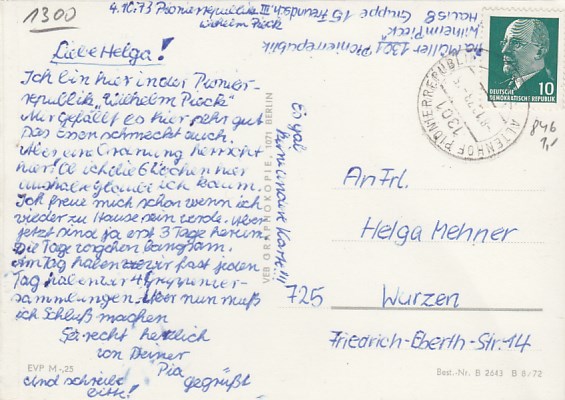 1300
4.10.73 Pionierrepublik
Wilhelm Pieck
Liebe Helga!
Ich bin hier in der Pionier-
republik „Wilhelm Pieck"
Mir gefällt es hier sehr gut
Das Essen schmeckt auch.
Aber eine Ordnung herrscht
hier! Ob ich die 6 Wochen hier
aushalte glaube ich kaum.
Ich freue mich schon wenn ich
wieder zu Hause sein werde. Aber
jetzt sind ja erst 3 Tage herum.
Die Tage vergehen langsam.
Am Tag haben wir fast jeden
Tag haben wir 4 Gruppenver-
sammlungen. Aber nun muß
ich Schluß machen
Sei recht herzlich
von Deiner
Pia
gegrüßt
und schreibe
bitte!
EVP M -,25
VEB GRAPHOKOPIE, 1071 BERLIN
Müller 1301 Pionierrepublik
"Wilhelm Pieck"
Haus 8 Gruppe 15 Freundsch. III
1301
ALTENHOF PIONIERREPUBLIK
10
DEUTSCHE
DEMOKRATISCHE REPUBLIK
846
1,-
An Frl.
Helga Mehner
725 Wurzen
Friedrich-Eberth-Str. 14
Best.-Nr. B 2643 B 8/72